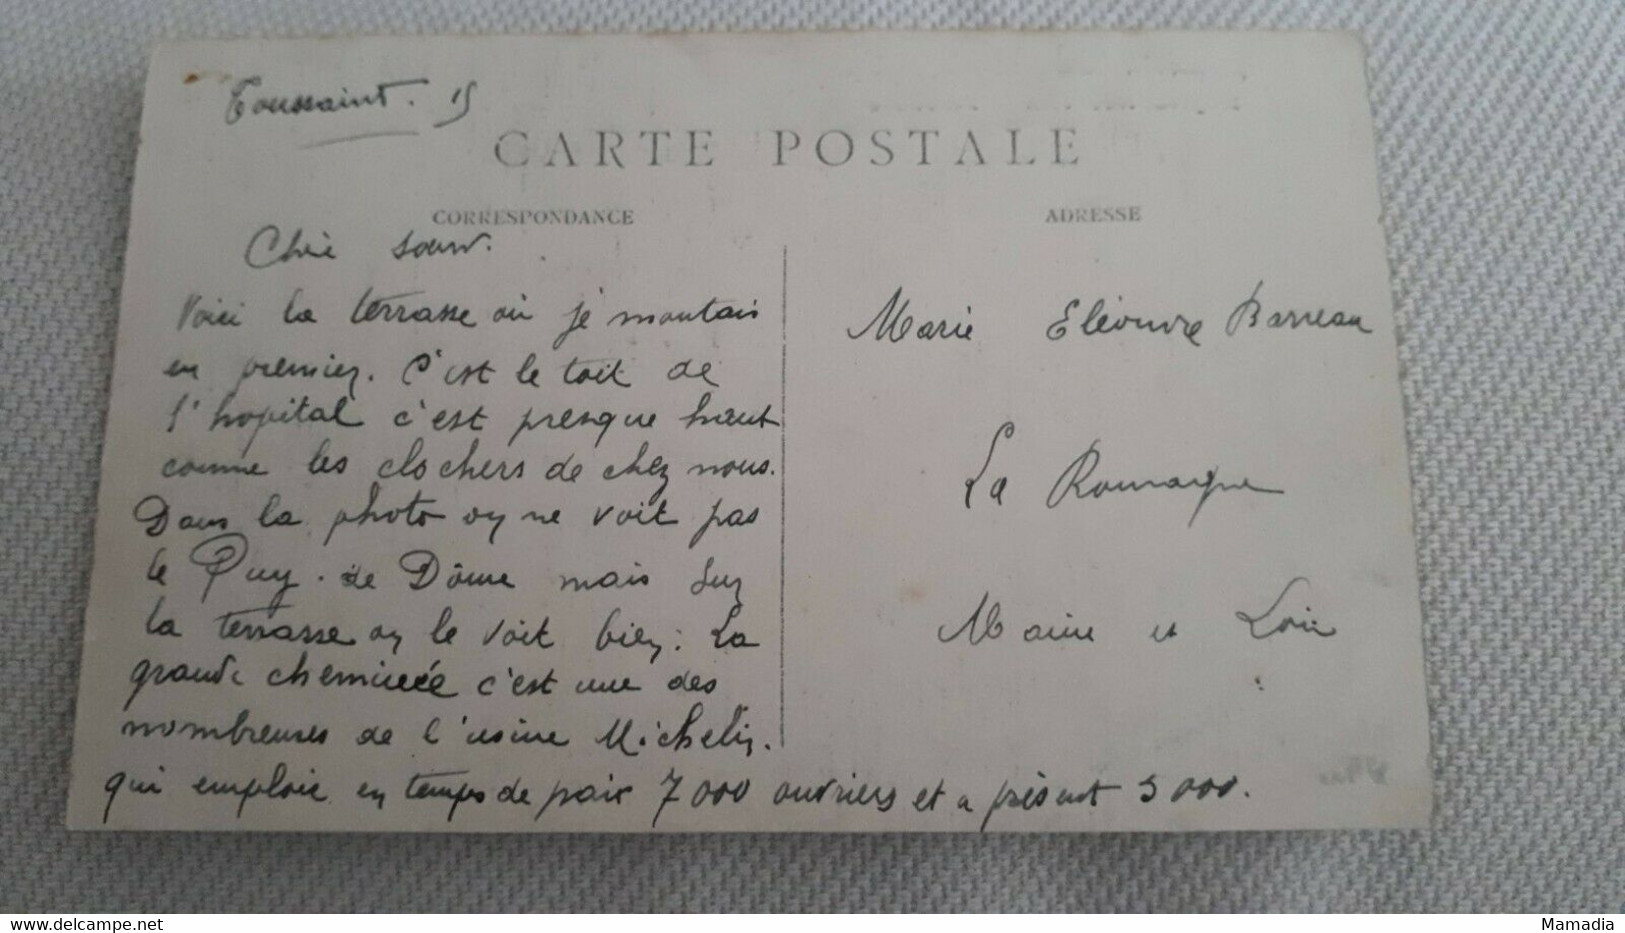 Toussaint. 15
CARTE POSTALE
CORRESPONDANCE
ADRESSE
Chère soeur.
Voici la terrasse où je montais
en premier. C'est le toit de
l'hopital c'est presque haut
comme les clochers de chez nous.
Dans la photo on ne voit pas
le Puy-de Dôme mais sur
la terrasse on le voit bien: La
grande cheminéé c'est une des
nombreuses de l'usine Michelin.
qui emploie en temps de paix 7 000 ouvriers et a présent 3 000.
Marie Eléonore Barreau
La Romagne
Maine et Loire
Mamadia